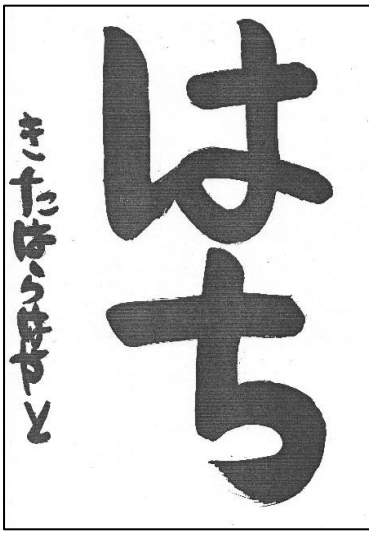 はち
きたはらはると